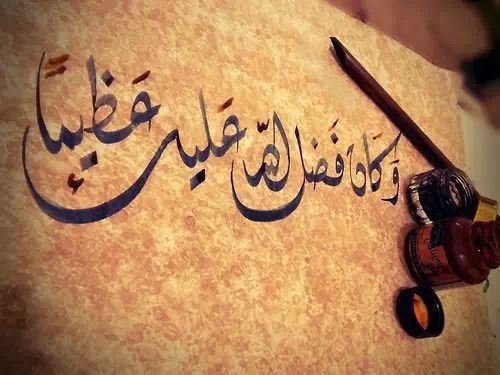 وَكَانَ فَضلُ اللّهِ عَلَيكَ عَظِيمًا